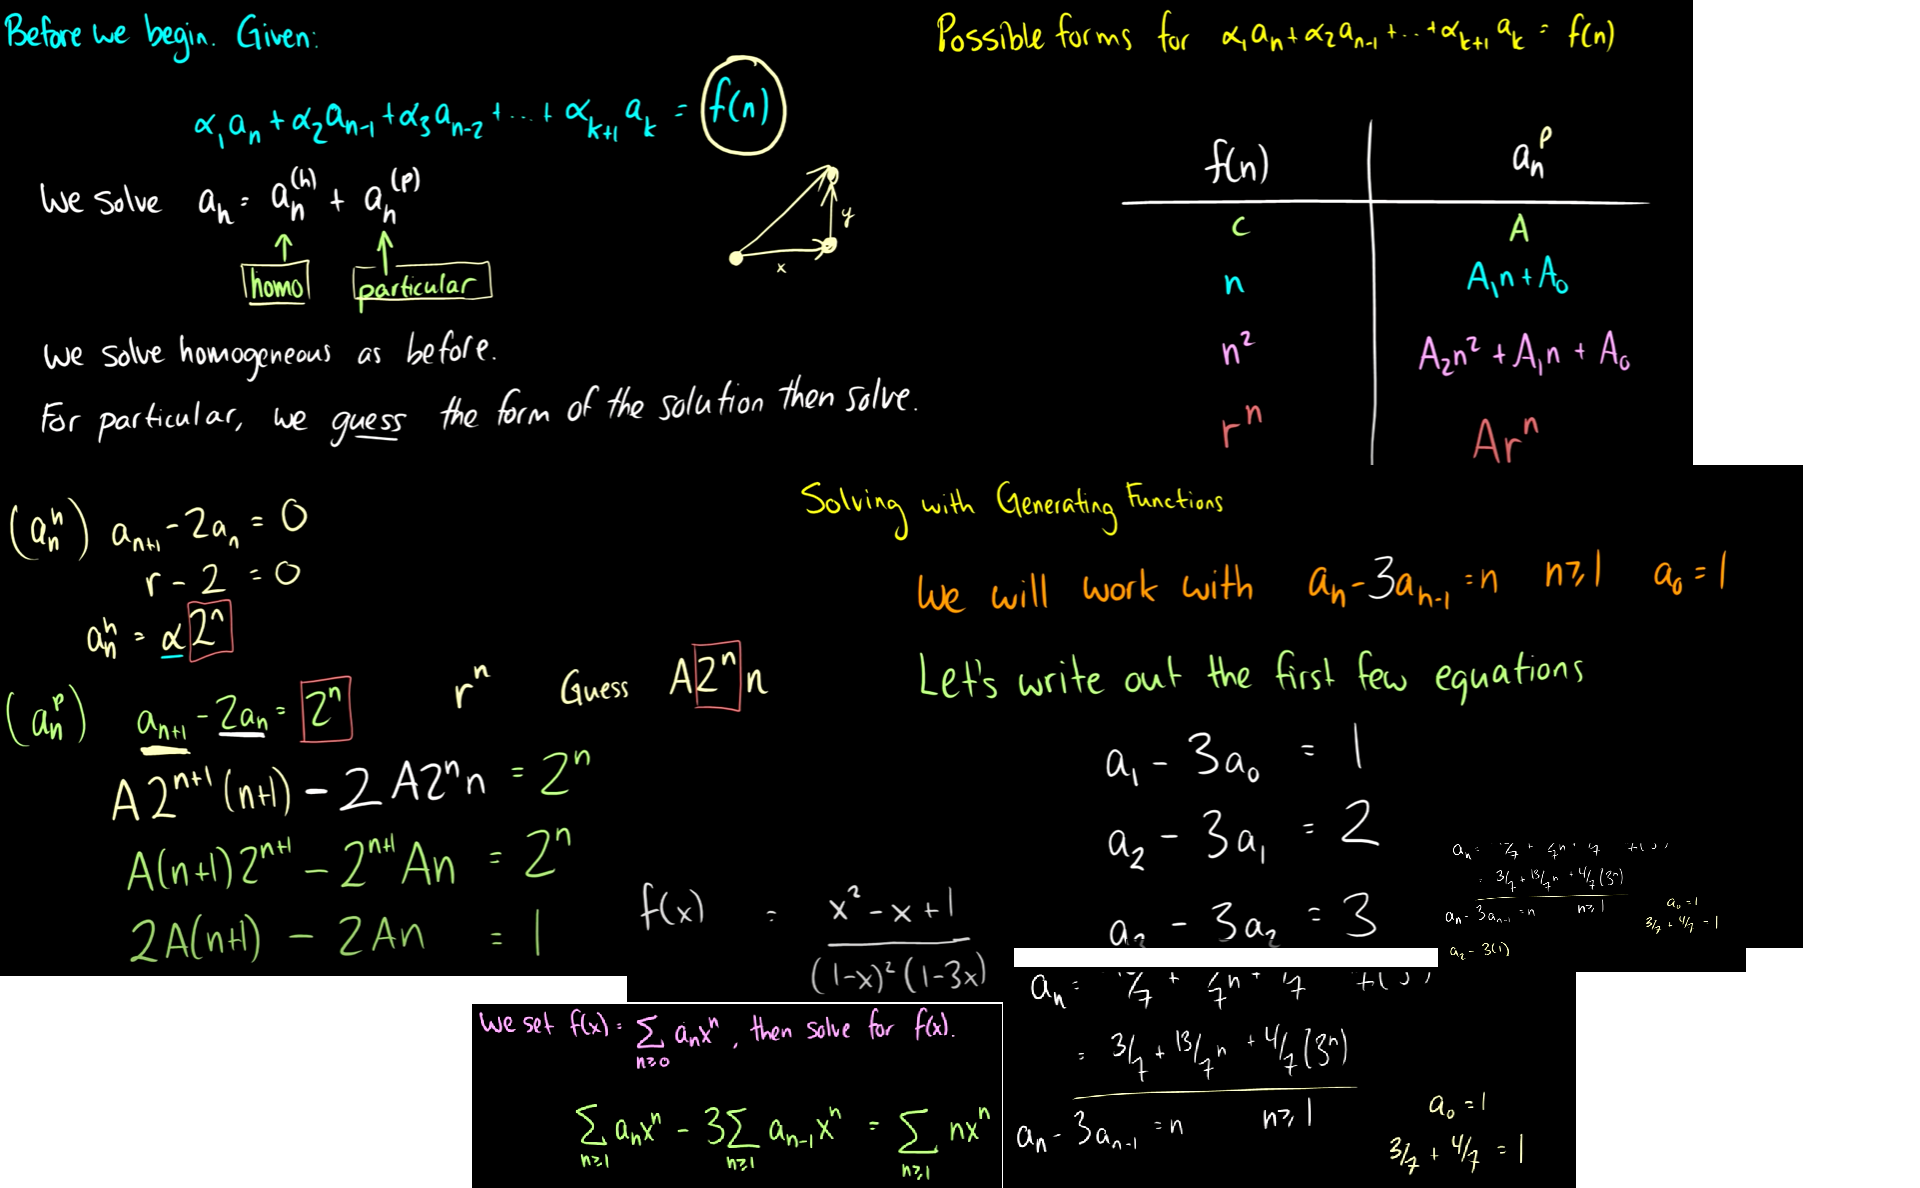 Before we begin. Given:
α₁aₙ + α₂aₙ₋₁ + α₃aₙ₋₂ + ... + αₖ₊₁ aₖ = f(n)
We solve aₙ = aₙ⁽ʰ⁾ + aₙ⁽ᵖ⁾
homo particular
x
y
We solve homogeneous as before.
For particular, we guess the form of the solution then solve.
Possible forms for α₁aₙ + α₂aₙ₋₁ + ... + αₖ₊₁ aₖ = f(n)
f(n) aₙᵖ
c A
n A₁n + A₀
n² A₂n² + A₁n + A₀
rⁿ Arⁿ
(aₙʰ) aₙ₊₁ - 2aₙ = 0
r - 2 = 0
aₙʰ = α2ⁿ
(aₙᵖ) aₙ₊₁ - 2aₙ = 2ⁿ rⁿ Guess A2ⁿn
A2ⁿ⁺¹(n+1) - 2A2ⁿn = 2ⁿ
A(n+1)2ⁿ⁺¹ - 2ⁿ⁺¹An = 2ⁿ
2A(n+1) - 2An = 1
Solving with Generating Functions
We will work with aₙ - 3aₙ₋₁ = n n≥1 a₀ = 1
Let's write out the first few equations
a₁ - 3a₀ = 1
a₂ - 3a₁ = 2
- 3a₂ = 3
aₙ =
= 3/7 + 13/7 n + 4/7 (3ⁿ)
aₙ - 3aₙ₋₁ = n n≥1
a₀ = 1
3/7 + 4/7 = 1
a₂ - 3(1)
f(x) = x² - x + 1
(1-x)² (1-3x)
We set f(x) = ∑ aₙxⁿ, then solve for f(x).
n≥0
∑ aₙxⁿ - 3∑ aₙ₋₁xⁿ = ∑ nxⁿ
n≥1 n≥1 n≥1
aₙ =
= 3/7 + 13/7 n + 4/7 (3ⁿ)
aₙ - 3aₙ₋₁ = n n≥1
a₀ = 1
3/7 + 4/7 = 1